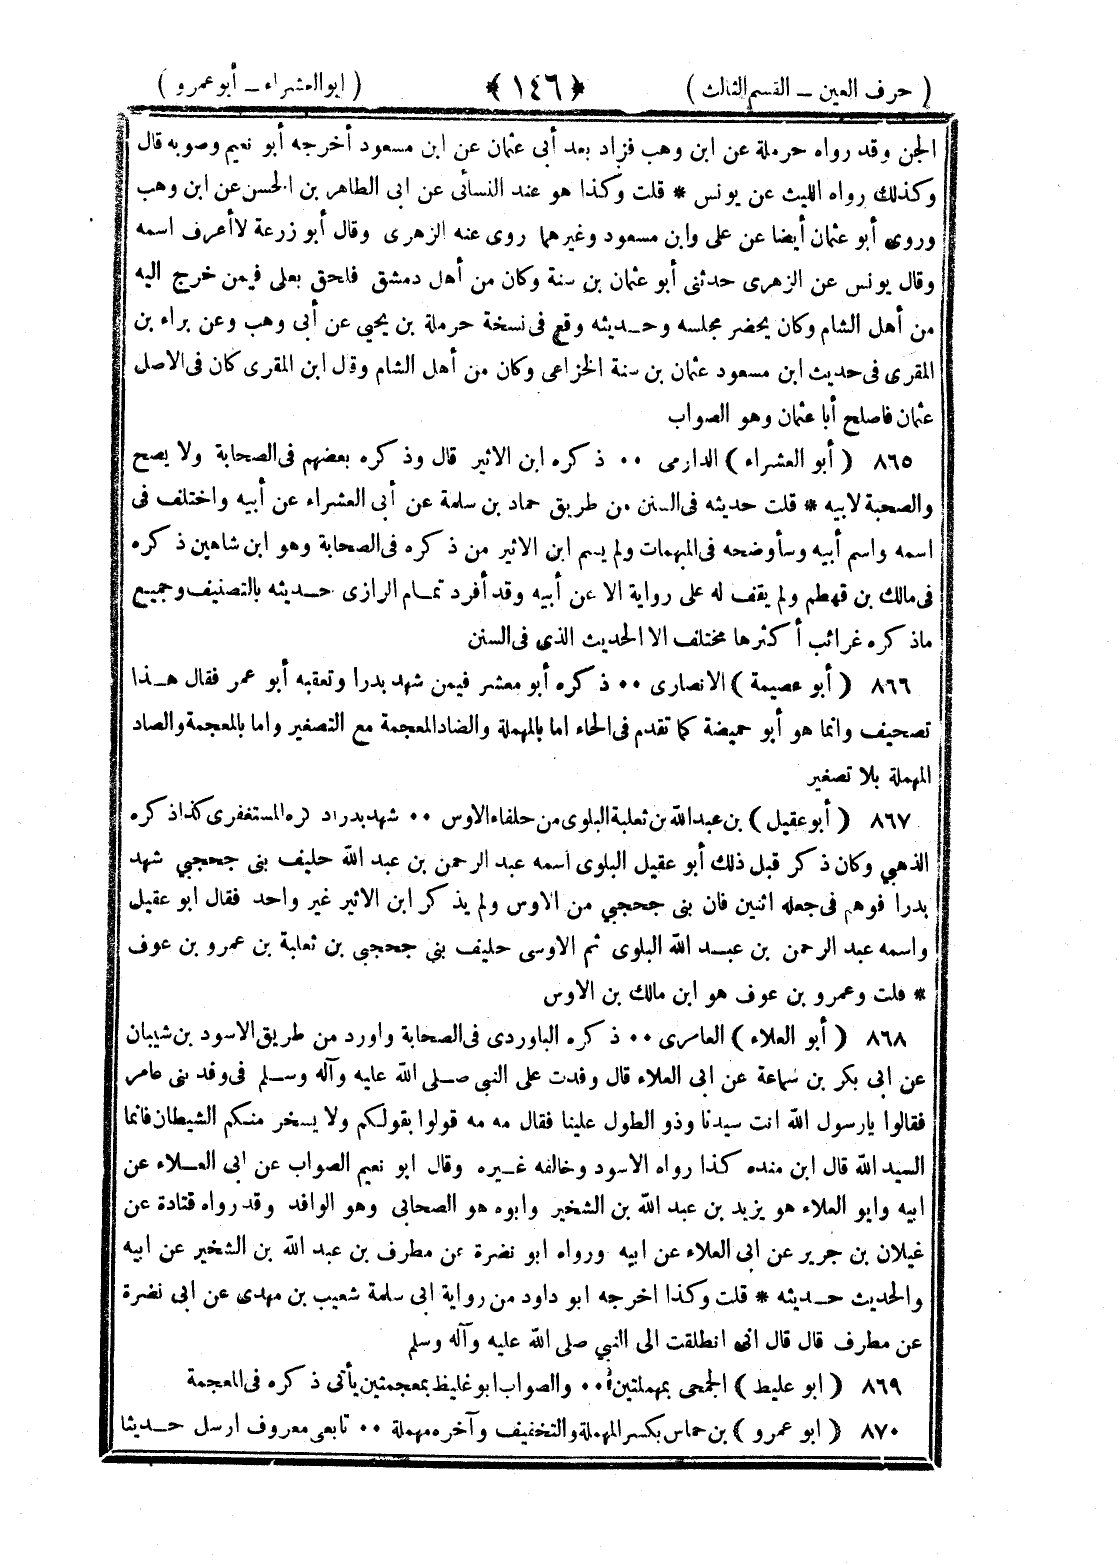 ( حرف العين – القسم الثالث ) ﴿ ١٤٦ ﴾ ( ابو العشراء – أبو عمرو )
الجن وقد رواه حرملة عن ابن وهب فزاد بعد أبى عثمان عن ابن مسعود أخرجه أبو نعيم وصوبه قال
وكذلك رواه الليث عن يونس * قلت وكذا هو عند النسائى عن ابى الطاهر بن الحسن عن ابن وهب
وروى أبو عثمان أيضا عن على وابن مسعود وغيرهما روى عنه الزهرى وقال أبو زرعة لا أعرف اسمه
وقال يونس عن الزهرى حدثنى أبو عثمان بن سنة وكان من أهل دمشق فلحق بعلى فيمن خرج اليه
من أهل الشام وكان يحضر مجلسه وحديثه وقع فى نسخة حرملة بن يحيى عن أبى وهب وعن براء بن
المقرى فى حديث ابن مسعود عثمان بن سنة الخزاعى وكان من أهل الشام وقال ابن المقرى كان فى الاصل
عثمان فاصلح أبا عثمان وهو الصواب
٨٦٥ ( أبو العشراء ) الدارمى ٠٠ ذكره ابن الاثير قال وذكره بعضهم فى الصحابة ولا يصح
والصحبة لابيه * قلت حديثه فى السنن من طريق حماد بن سلمة عن أبى العشراء عن أبيه واختلف فى
اسمه واسم أبيه وسأوضحه فى المبهمات ولم يسم ابن الاثير من ذكره فى الصحابة وهو ابن شاهين ذكره
فى مالك بن قهطم ولم يقف له على رواية الا عن أبيه وقد أفرد تمام الرازى حديثه بالتصنيف وجميع
ماذكره غرائب أكثرها مختلف الا الحديث الذى فى السنن
٨٦٦ ( أبو عصيمة ) الانصارى ٠٠ ذكره أبو معشر فيمن شهد بدرا وتعقبه أبو عمر فقال هذا
تصحيف وانما هو أبو حميضة كما تقدم فى الحاء اما بالمهملة والضاد المعجمة مع التصغير واما بالمعجمة والصاد
المهملة بلا تصغير
٨٦٧ ( أبو عقيل ) بن عبد الله بن ثعلبة البلوى من حلفاء الاوس ٠٠ شهد بدرا ذكره المستغفرى كذا ذكره
الذهبي وكان ذكر قبل ذلك أبو عقيل البلوى اسمه عبد الرحمن بن عبد الله حليف بنى جحجبي شهد
بدرا فوهم فى جعله اثنين فان بنى جحجبي من الاوس ولم يذكر ابن الاثير غير واحد فقال ابو عقيل
واسمه عبد الرحمن بن عبد الله البلوى ثم الاوسى حليف بنى جحجبى بن ثعلبة بن عمرو بن عوف
* قلت وعمرو بن عوف هو ابن مالك بن الاوس
٨٦٨ ( أبو العلاء ) العامرى ٠٠ ذكره الباوردى فى الصحابة واورد من طريق الاسود بن شيبان
عن ابى بكر بن سماعة عن ابى العلاء قال وفدت على النبي صلى الله عليه وآله وسلم فى وفد بنى عامر
فقالوا يارسول الله انت سيدنا وذو الطول علينا فقال مه مه قولوا بقولكم ولا يسخر منكم الشيطان فانما
السيد الله قال ابن منده كذا رواه الاسود وخالفه غيره وقال ابو نعيم الصواب عن ابى العلاء عن
ابيه وابو العلاء هو يزيد بن عبد الله بن الشخير وابوه هو الصحابى وهو الوافد وقد رواه قتادة عن
غيلان بن جرير عن ابى العلاء عن ابيه ورواه ابو نضرة عن مطرف بن عبد الله بن الشخير عن ابيه
والحديث حديثه * قلت وكذا اخرجه ابو داود من رواية ابى سلمة شعيب بن مهدى عن ابى نضرة
عن مطرف قال قال انى انطلقت الى النبي صلى الله عليه وآله وسلم
٨٦٩ ( ابو عليط ) الجمحى بمهملتين ٠٠ والصواب ابو غليظ بمعجمتين يأتى ذكره فى المعجمة
٨٧٠ ( ابو عمرو ) بن حماس بكسر المهملة والتخفيف وآخره مهملة ٠٠ تابعى معروف ارسل حديثا